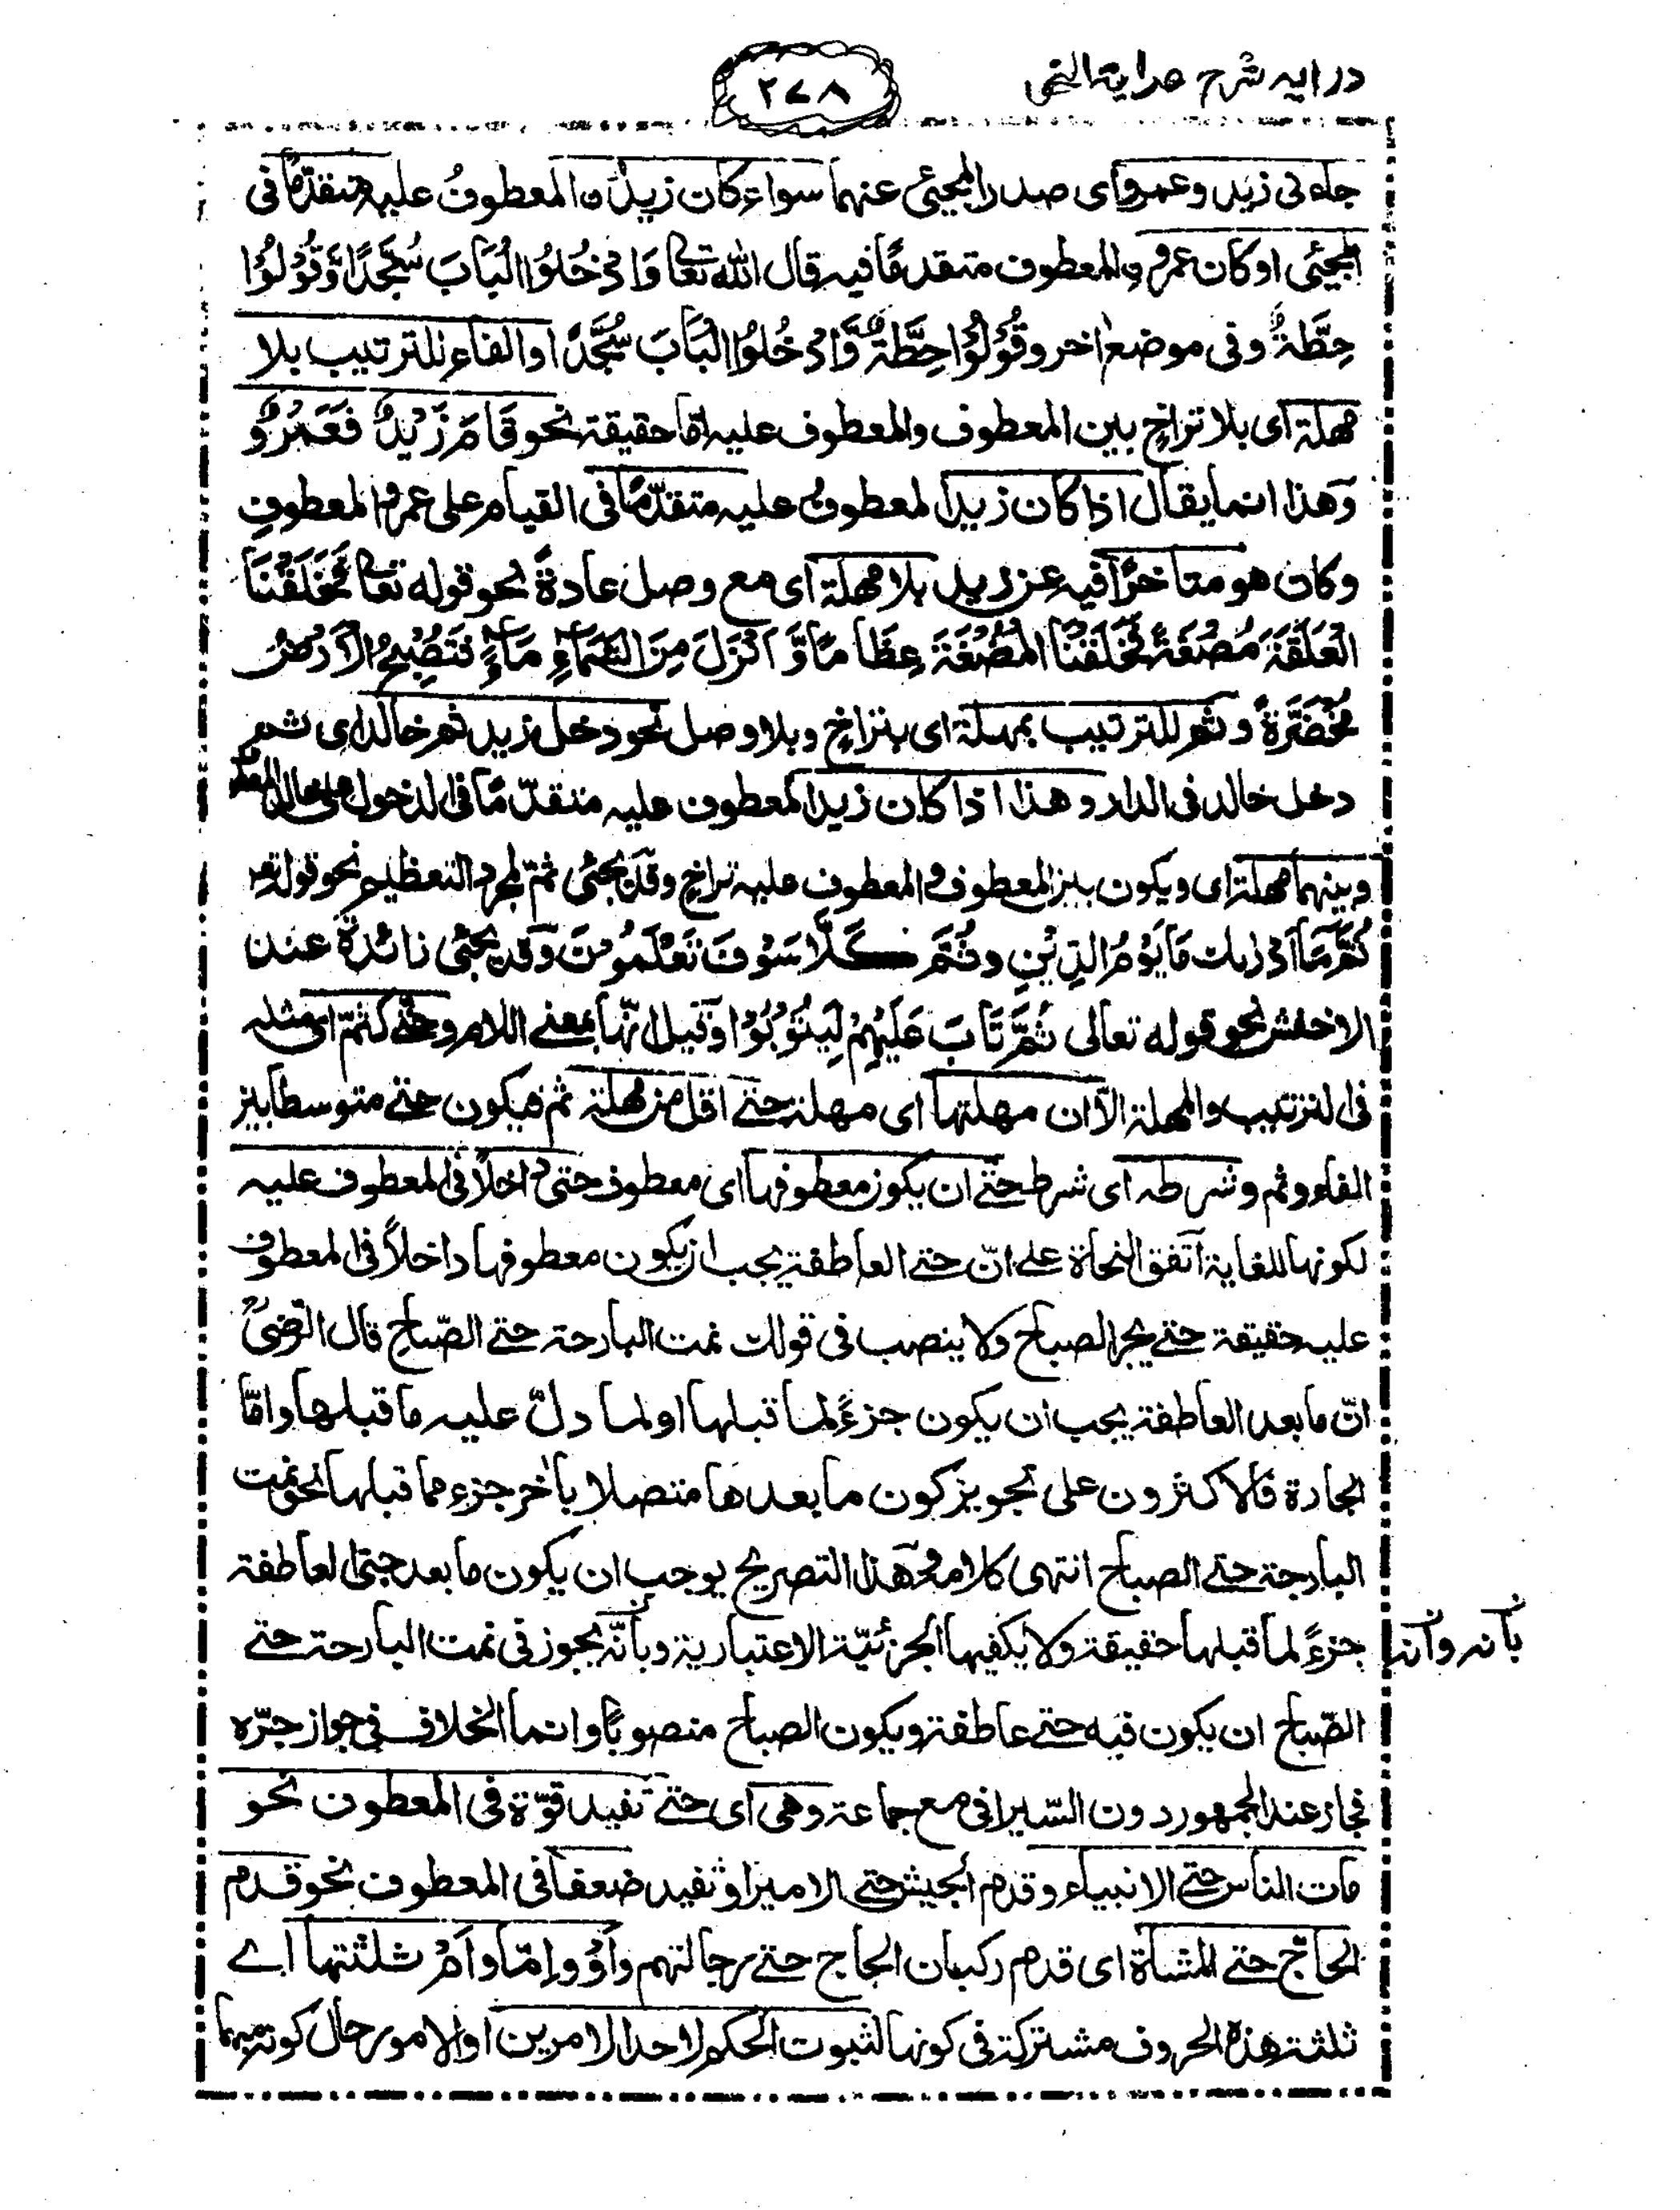 درايه شرح هداية النحو
٢٧٨
جاءنى زيد وعمرو اى صدر المجيئى عنهما سواء كان زيد ن المعطوف عليه متقدمًا فى
المجيئى او كان عمرو المعطوف متقدمًا فيه قال الله تعالى وَادْخُلُوا الْبَابَ سُجَّدًا وَّقُوْلُوْا
حِطَّةٌ وفى موضع اٰخر وقُوْلُوْا حِطَّةٌ وَّادْخُلُوا الْبَابَ سُجَّدًا والفاء للترتيب بلا
مهلة اى بلا تراخٍ بين المعطوف والمعطوف عليه امّا حقيقة نحو قَامَ زَيْدٌ فَعَمْرٌو
وهذا انما يقال اذا كان زيد المعطوف عليه متقدّمًا فى القيام على عمرو المعطوفِ
وكان هو متاخرًا فيه عن زيد بلا مهلة اى مع وصل عادةً نحو قوله تعالى فَخَلَقْنَا
الْعَلَقَةَ مُضْغَةً فَخَلَقْنَا الْمُضْغَةَ عِظَامًا وَّ اَنْزَلَ مِنَ السَّمَاءِ مَاءً فَتُصْبِحُ الْاَرْضُ
مُخْضَرَّةً وثم للترتيب بمهلة اى بتراخٍ وبلا وصل نحو دخل زيد ثم خالد اى ثم
دخل خالد فى الدار وهذا اذا كان زيد المعطوف عليه متقدّمًا فى الدخول على خالد المعطوف
وبينهما مهلة اى ويكون بين المعطوف والمعطوف عليه تراخٍ وقد يجئى ثمّ لمجرد التعظيم نحو قوله تع
ثُمَّ مَا اَدْرٰىكَ مَا يَوْمُ الدِّيْنِ وثُمَّ كَلَّا سَوْفَ تَعْلَمُوْنَ وقد يجئى زائدة عند
الاخفش نحو قوله تعالى ثُمَّ تَابَ عَلَيْهِمْ لِيَتُوْبُوْا وقيل انّها بمعنے اللام وحتّٰے كثمّ اى مثله
فى الترتيب والمهلة الّا ان مهلتها اى مهلة حتے اقل من مهلة ثم فيكون حتے متوسطا بين
الفاء وثم وشرطه اى شرط حتّے ان يكون معطوفها اى معطوف حتى داخلًا فى المعطوف عليه
لكونها للغاية اتفق النحاة علے انّ حتے العاطفة يجب ان يكون معطوفها داخلًا فى المعطوف
عليه حقيقة حتے يجر الصباح ولا ينصب فى قولك نمت البارحة حتے الصّباحِ قال الرّضى
انّ ما بعد العاطفة يجب ان يكون جزءً لما قبلها او لما دلّ عليه ما قبلها وامّا
الجارة فالاكثرون على تجويز كون ما بعدها متصلا باٰخر جزء مما قبلها نحو نمت
البارحة حتے الصباح انتهى كلامه وهذا التصريح يوجب ان يكون ما بعد حتى العاطفة
جزءً لما قبلها حقيقة ولا يكفيها الجزئيّة الاعتبارية وبانّه يجوز فى نمت البارحة حتے
بانه وانه
الصّباح ان يكون فيه حتے عاطفة ويكون الصباح منصوبًا وانما الخلاف فى جواز جرّه
فجاز عند الجمهور دون السّيرافى مع جماعة وهى اى حتے تفيد قوّة فى المعطوف نحو
مات الناس حتے الانبياء وقدم الجيش حتے الامير او تفيد ضعفا فى المعطوف نحو قدم
الحاجّ حتے المشاة اى قدم ركبان الحاج حتے رجالتهم وَاَوْ وَاِمّا وَاَمْ ثلثتها اے
ثلثة هذه الحروف مشتركة فى كونها لثبوت الحكم لاحد الامرين او الامور حال كونه مبهما